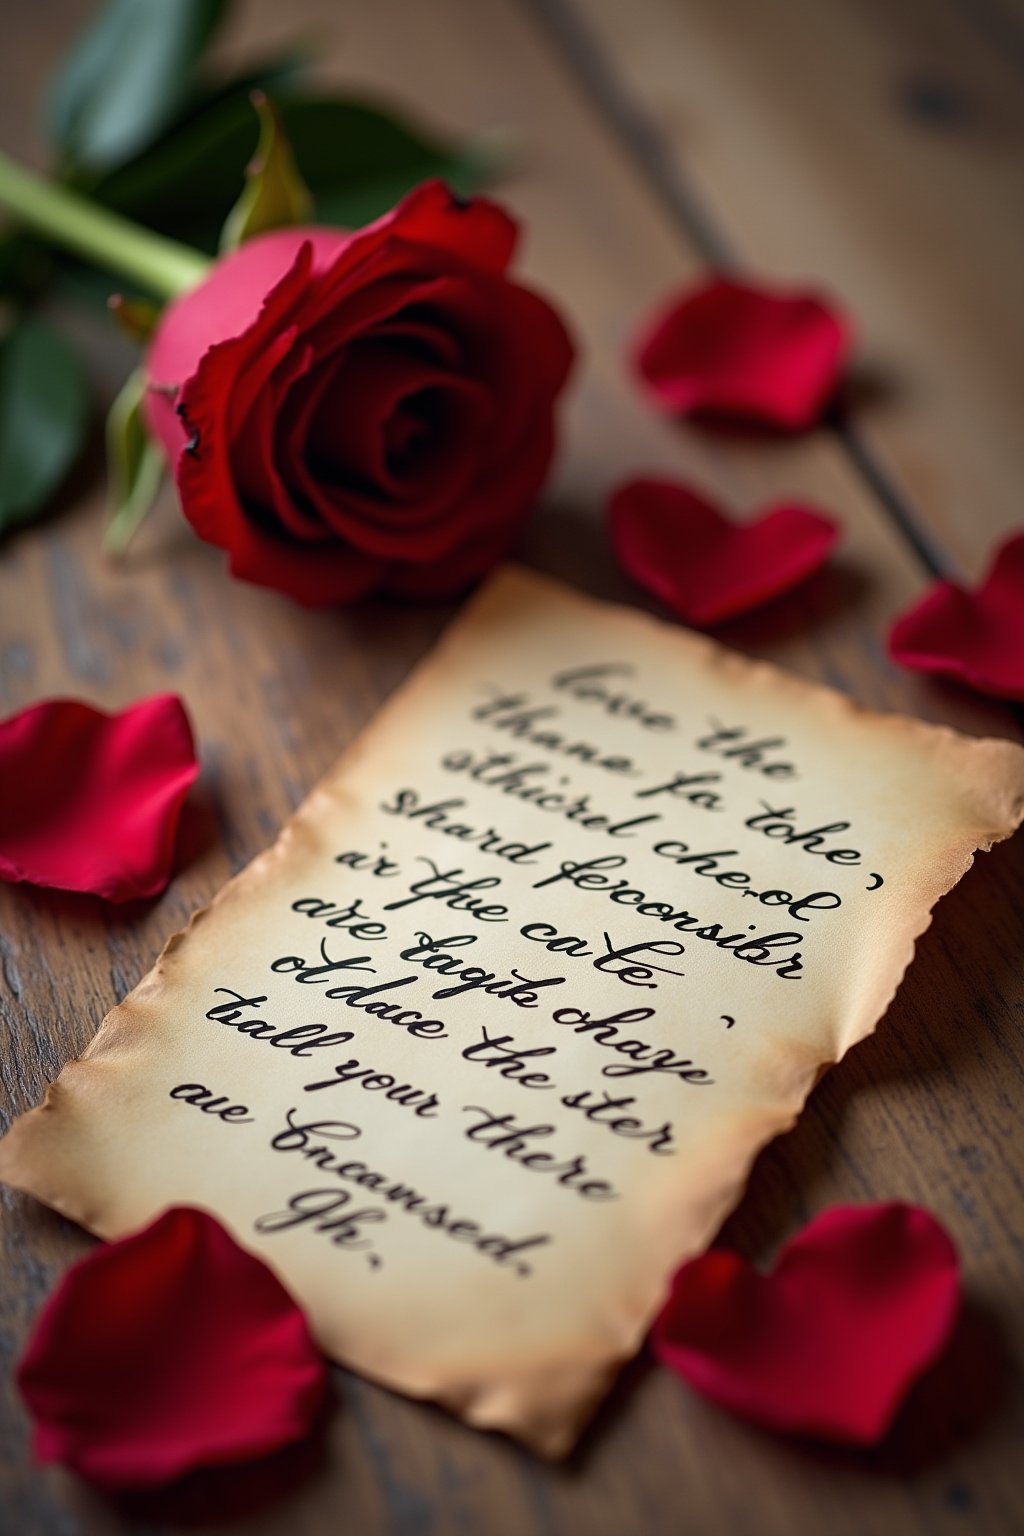 love the
thane fa tohe,
sthicrel che.ol
shard ferconsibr
air the cate.
are tagik chaye'
ot dace the ster
tall your there
aue Encawsed.
Gh.